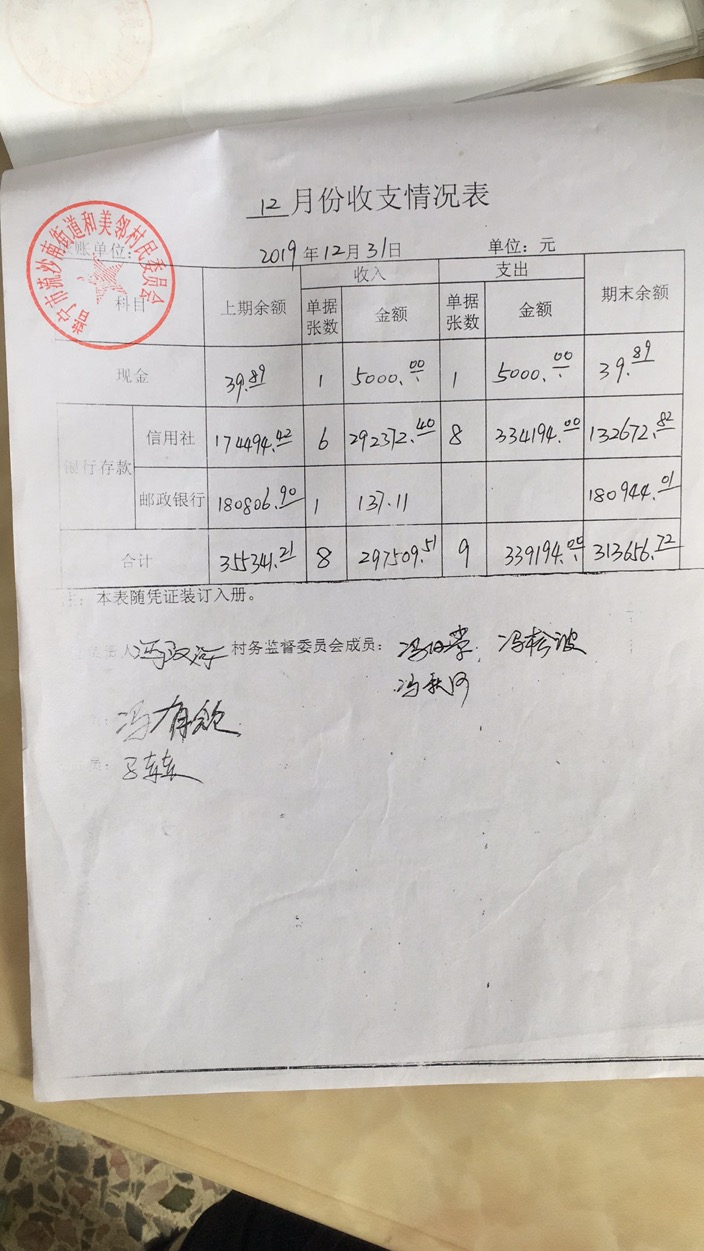 12月份收支情况表
普宁市流沙南街道和美邻村民委员会
账单位:
2019年12月31日
单位:元
科目 上期余额 收入 支出 期末余额
单据张数 金额 单据张数 金额
现金 39.89 1 5000.00 1 5000.00 39.89
银行存款
信用社 174494.42 6 292372.40 8 334194.00 132672.82
邮政银行 180806.90 1 137.11 180944.01
合计 355341.21 8 297509.51 9 339194.00 313656.72
注:本表随凭证装订入册。
村务监督委员会成员: 冯松波